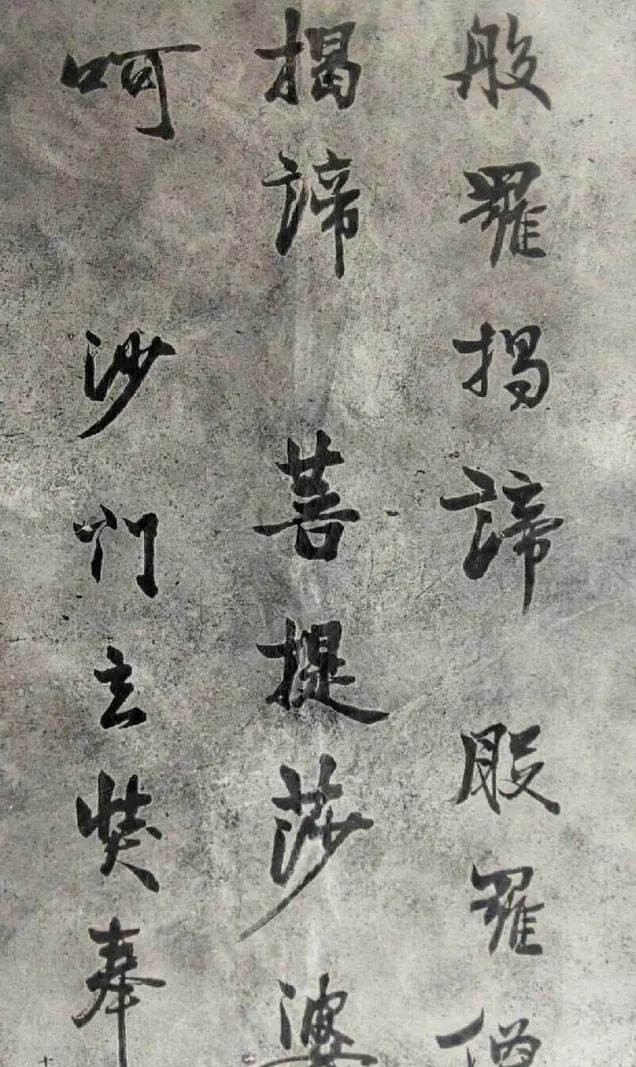 般羅揭諦 般羅僧
揭諦 菩提莎婆
呵 沙門玄奘奉